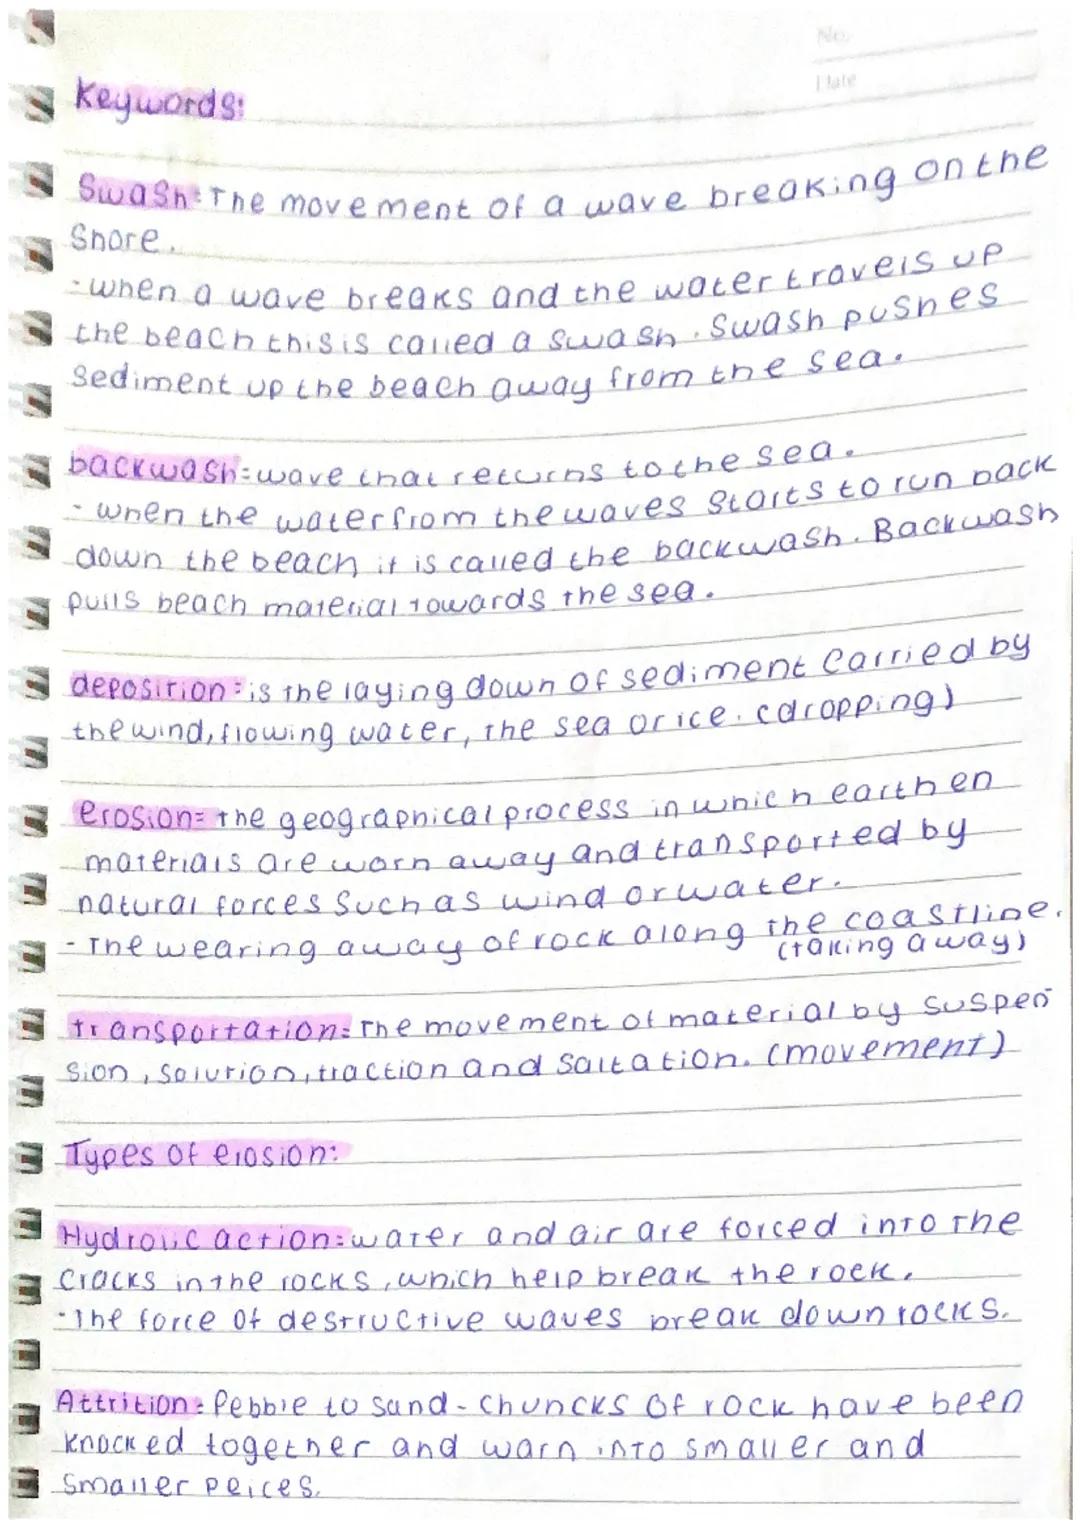 No.
Date
Keywords:
Swash: The movement of a wave breaking on the
shore.
- when a wave breaks and the water travels up
the beach this is called a swash. Swash pushes
sediment up the beach away from the sea.
backwash: wave that returns to the sea.
- when the water from the waves starts to run back
down the beach it is called the backwash. Backwash
pulls beach material towards the sea.
deposition: is the laying down of sediment carried by
the wind, flowing water, the sea or ice. (dropping)
erosion: the geographical process in which earthen
materials are worn away and transported by
natural forces such as wind or water.
- The wearing away of rock along the coastline.
(taking away)
transportation: The movement of material by suspen
sion, solution, traction and saltation. (movement)
Types of erosion:
Hydrolic action: water and air are forced into the
cracks in the rocks, which help break the rock.
- The force of destructive waves break down rocks.
Attrition: Pebble to sand - chuncks of rock have been
knocked together and warn into smaller and
smaller peices.